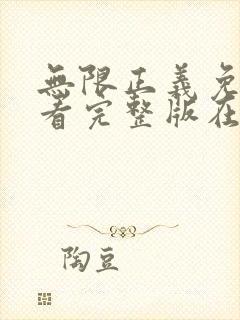 無限正義免
看完整版在
陶豆